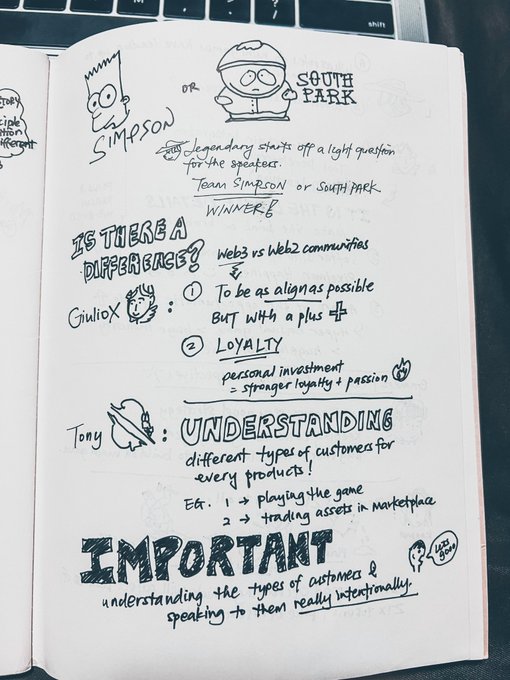 shift
STORY
ciple
tion
ifferent
SIMPSON
OR
SOUTH
PARK
Legendary starts off a light question
for the speakers.
Team SIMPSON or SOUTH PARK
WINNER!
IS THERE A
DIFFERENCE?
Web3 vs Web2 communities
GiulioX :
① To be as align as possible
BUT with a plus +
② LOYALTY
personal investment
= stronger loyalty + passion
Tony : UNDERSTANDING
different types of customers for
every products!
EG. 1 → playing the game
2 → trading assets in marketplace
IMPORTANT
understanding the types of customers &
speaking to them really intentionally.